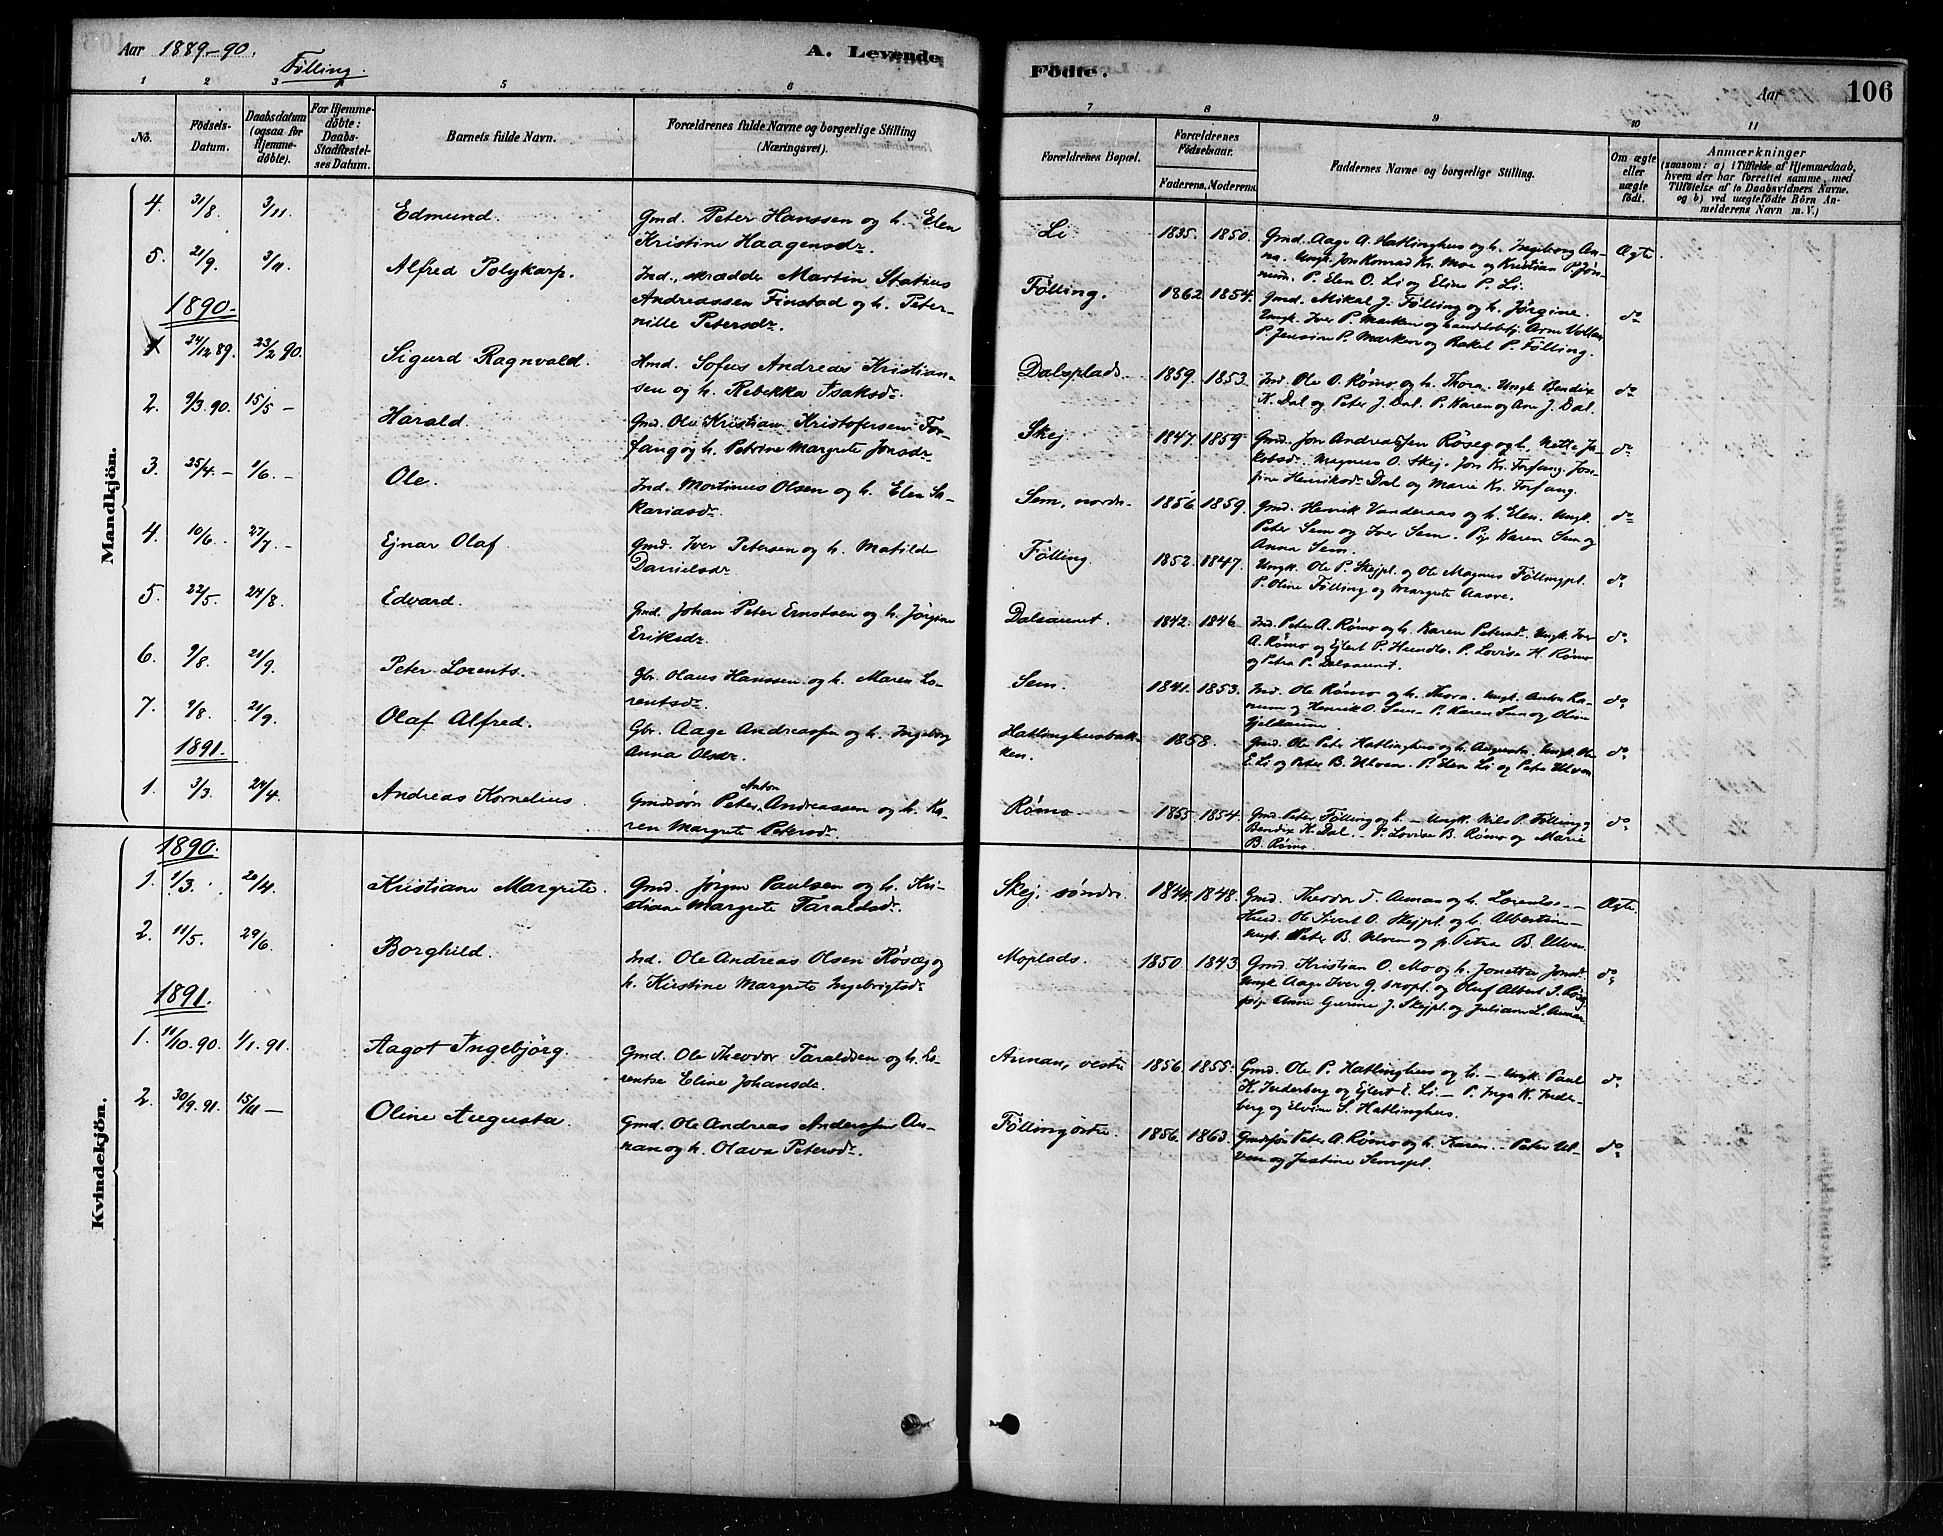 Aar 1889-90.
Følling.
A. Levende
Födte.
Aar
106
1 2 3 5 6 7 8 9 10 11
No.
Födsels-
Datum.
Daabsdatum
(ogsaa for
Hjemme-
döbte).
For Hjemme-
döbte:
Daabs-
Stadfæstel-
ses Datum.
Barnets fulde Navn.
Forældrenes fulde Navne og borgerlige Stilling
(Næringsvei).
Forældrenes Bopæl.
Forældrenes
Födselsaar.
Faderens. Moderens.
Faddernes Navne og borgerlige Stilling.
Om ægte
eller
uægte
födt.
Anmærkninger
(saasom: a) i Tilfælde af Hjemmedaab,
hvem der har forrettet samme, med
Tilföielse af to Daabsvidners Navne.
og b) ved uægtefödte Börn An-
melderens Navn m. V.)
Mandkjön.
4. 31/8. 3/11. Edmund. Gmd. Peter Hanssen og h. Elen
Kristine Haagensdr.
Li. 1835. 1850. Gmd. Aage A. Hatlinghus og h. Ingeborg An-
na. Ungk. Jon Konrad Kr. Moe og Kristian P. Jön-
num. P. Elen O. Li og Eline P. Li. Ægte.
5. 21/9. 3/11. Alfred Polykarp. Ind., skrædder Martin Statius
Andreassen Finstad og h. Peter-
nille Petersdr.
Følling. 1862 1854. Gmd. Mikal J. Følling og h. Jørgine.
Ungk. Iver P. Marken og
P. Jensine P. Marken og Rakel P. Følling. do
1890.
1 24/12 89. 23/2 90. Sigurd Ragnvald. Hmd. Sofus Andreas Kristian-
sen og h. Rebekka Isaksdr.
Dalsplads. 1859. 1853. Ind. Ole O. Rømo og h. Thora. Ungk. Bendix
K. Dal og Peter J. Dal. P. Karen og Ane J. Dal. do
2. 9/3. 90. 15/5 – Harald. Gmd. Ole Kristian Kristofersen For-
fang og h. Petrine Margrete Jonsdr.
Skej. 1847. 1859. Gmd. Jon Andreassen Röseg og h. Mette Ja-
kobsd. Magnus O. Skej. Jon Kr. Forfang. Jon-
sine Henriksdr Dal og Marie Kr. Forfang. do
3. 25/4. – 1/6. – Ole. Ind. Mortinus Olsen og h. Elen Sa-
kariasdr.
Sem, nordr. 1856. 1859. Gmd. Henrik Vanderaas og h. Elen. Ungk.
Peter Sem og Iver Sem. Pip. Karen Sem og
Anna Sem. do
4. 10/6. 27/7. – Ejnar Olaf. Gmd. Iver Petersen og h. Matilde
Danielsdr.
Følling. 1852. 1847. Ungk. Ole P. Skejpl. og Ole Magnus Föllingpl.
P. Oline Fölling og Margrete Aasve. do.
5. 22/5. 24/8. Edvard. Gmd. Johan Peter Ernstsen og h. Jørgine
Eriksdr.
Dalsaunet. 1842. 1846. Ind. Peter A. Rømo og h. Karen Petersd. Ungk. Iver
A. Rømo og Ejlert P. Hundl. P. Lovise H. Rømo
og Petra P. Dalsaunet. do
6. 9/8. 21/9. Peter Lorents. Gbr. Olaus Hanssen og h. Maren Lo-
rentsdr.
Sem. 1841. 1853. Ind. Ole Rømo og h. Thora. Ungk. Anton Ra-
num og Henrik O. Sem. P. Karen Sem og Oline
Gjeldaune. do
7. 9/8. 21/9. Olaf Alfred. Gbr. Aage Andreassen og h. Ingeborg
Anna Olsdr.
Hatlinghusbak-
ken. 1858. Gmd. Ole Peter Hatlinghus og h. Augusta. Ungk. Ole
E. Li og Peter B. Ulven. P. Elen Li og Petra Ulven do
1891.
1. 3/3. 24/4. Andreas Kornelius. Gmdssøn Peter Anton Andreassen og h. Ka-
ren Margrete Petersdr.
Rømo. 1855. 1854. Gmd. Peter Følling og h. – Ungk. Nils P. Følling og
Bendix K. Dal. – P. Lovise B. Rømo og Marie
B. Rømo. do
Kvindekjön.
1890.
1. 1/3. 20/4. Kristiane Margrete. Gmd. Jörgen Paulsen og h. Kri-
stiane Margrete Taraldsdr.
Skej, søndre 1844. 1848. Gmd. Theodor T. Aunan og h. Lorentse. –
Husm. Ole Sivert O. Skejpl. og h. Albertine –
Ungk. Peter B. Ulven og p. Petra B. Ulven. Ægte.
2. 11/5. 29/6. Borghild. Ind. Ole Andreas Olsen Røsæg og
h. Kirstine Margrete Ingebrigtsdr.
Moplads. 1850. 1843. Gmd. Kristian O. Mo og h. Jonetta Jonsd.
Ungk. Aage Iver G. Mopl. og Oluf Albert J. Röseg
pip. Anne Gurine J. Skejpl. og Juliane L. Aunan. do
1891.
1. 11/10. 90. 1/1. 91. Aagot Ingebjörg. Gmd. Ole Theodor Taraldsen og h. Lo-
rentse Eline Johansdr.
Aunan, vestre 1856. 1855. Gmd. Ole P. Hatlinghus og h. – Ungk. Paul
K. Inderberg og Ejlert E. Li. – P. Inga K. Inder-
berg og Elvine S. Hatlinghus. do
2. 30/9. 91. 15/11 – Oline Augusta. Gmd. Ole Andreas Anderssen Au-
nan og h. Olava Petersdr.
Følling østre. 1856. 1863. Gmdssøn Peter A. Rømo og h. Karen. – Peter Ul-
ven og Justine Semspl. do